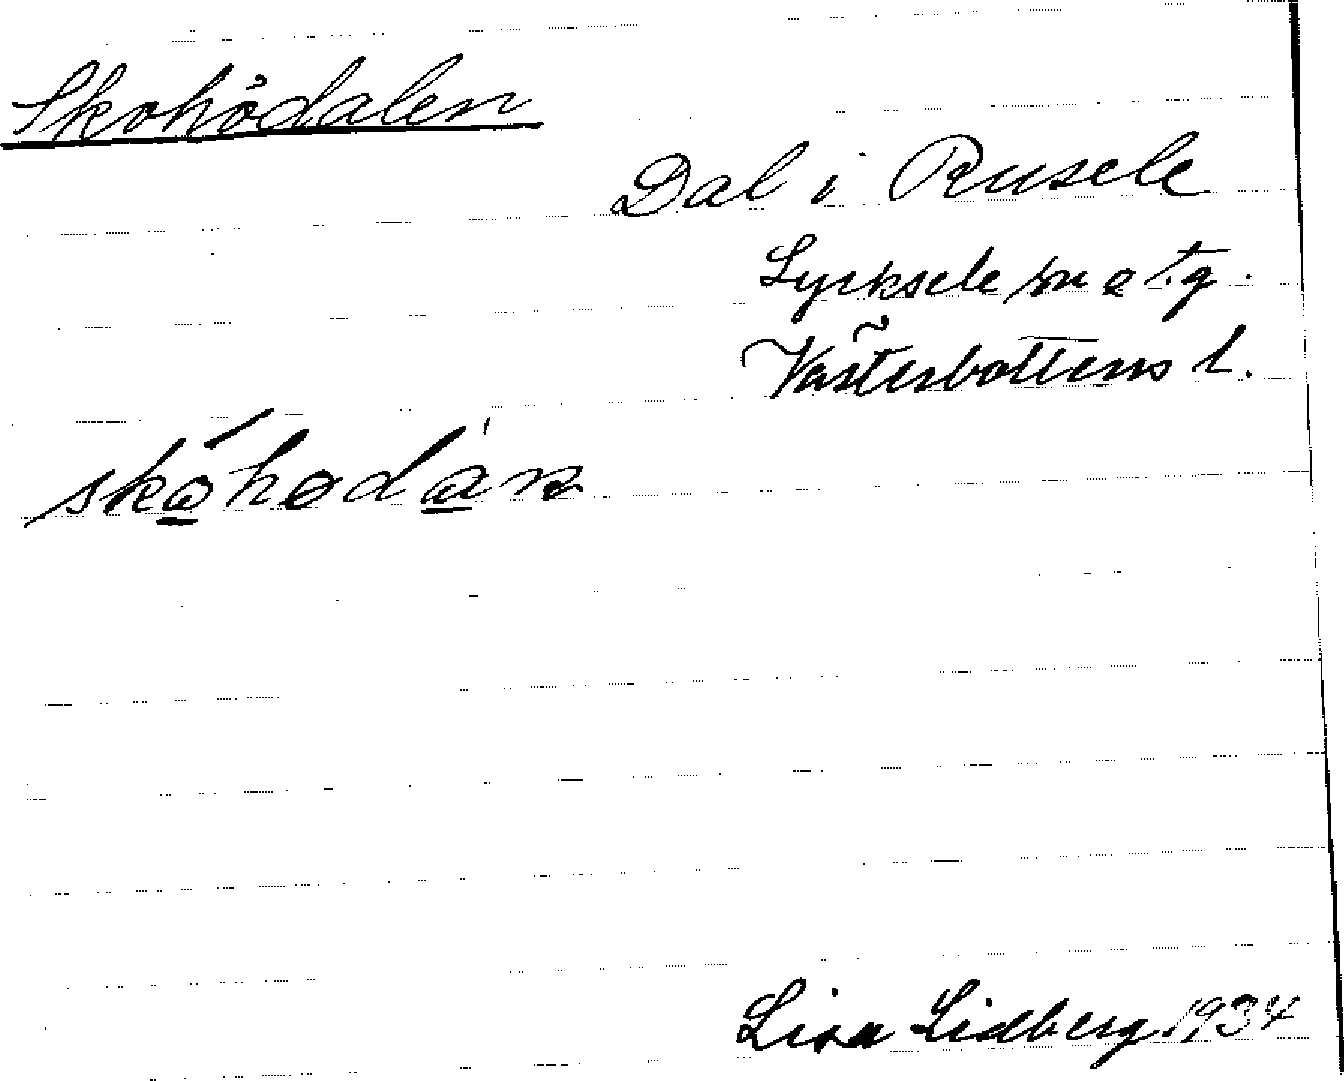 Skohödalen
Dal i Rusele
Lycksele sn o tg.
Västerbottens l.
skóhodán
Lisa Lidberg 1934